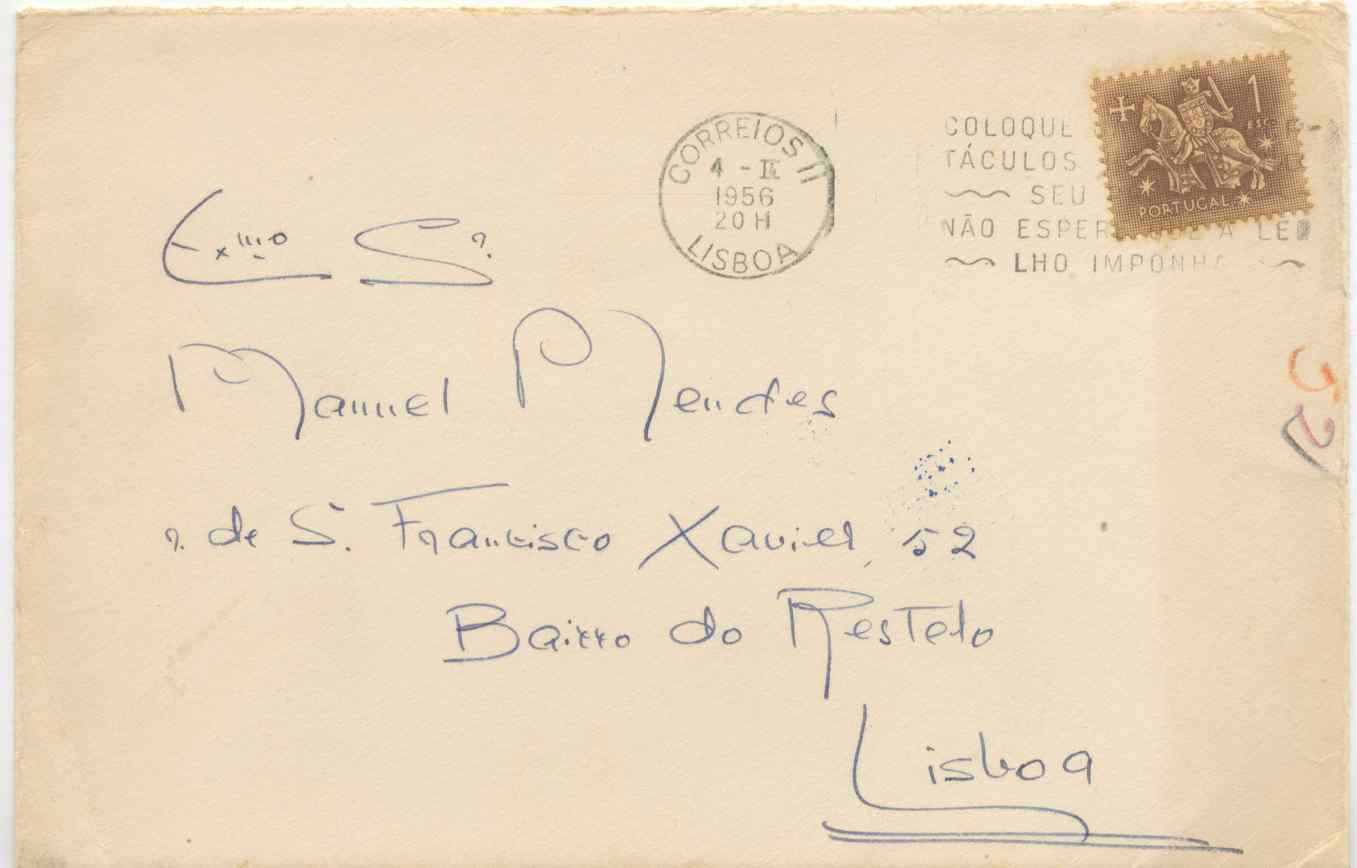 CORREIOS
4 - II
1956
20 H
LISBOA
COLOQUE
TÁCULOS
SEU
NÃO ESPER QUE A LEI
LHO IMPONHA
1
ESC.
PORTUGAL
Exmo Sr
Manuel Mendes
r. de S. Francisco Xavier, 52
Bairro do Restelo
Lisboa
52